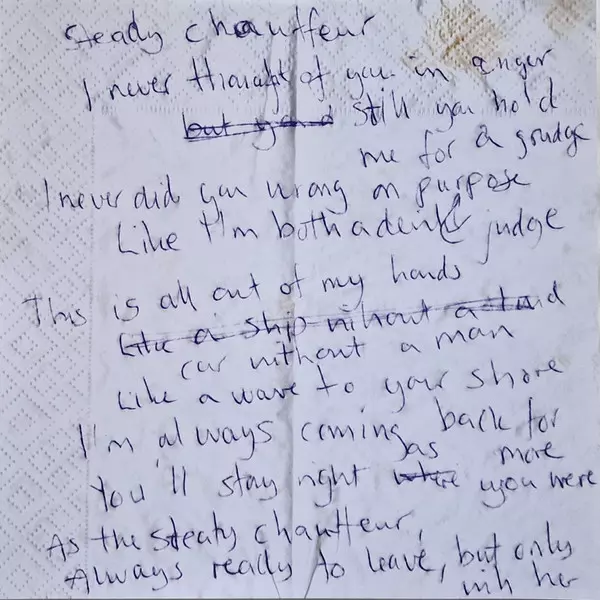 Steady chauffeur
I never thought of you in anger
but you'd still you hold
me for a grudge
I never did you wrong on purpose
Like I'm both a devil & judge
This is all out of my hands
Like a ship without a stand
car without a man
Like a wave to your shore
I'm always coming back for
more
You'll stay right where as you were
As the steaty chauffeur,
Always ready to leave, but only
with her